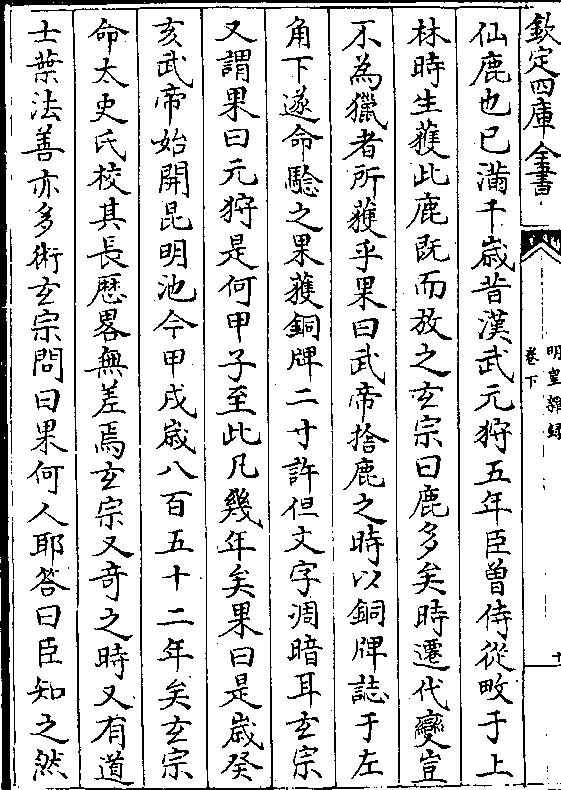 欽定四庫全書
明皇雜録
卷下
十
仙鹿也已滿千歳昔漢武元狩五年臣曾侍從畋于上
林時生獲此鹿既而放之玄宗曰鹿多矣時遷代變豈
不為獵者所獲乎果曰武帝捨鹿之時以銅牌誌于左
角下遂命驗之果獲銅牌二寸許但文字凋暗耳玄宗
又謂果曰元狩是何甲子至此凡幾年矣果曰是歳癸
亥武帝始開昆明池今甲戌歳八百五十二年矣玄宗
命太史氏校其長歴畧無差焉玄宗又奇之時又有道
士葉法善亦多術玄宗問曰果何人耶答曰臣知之然